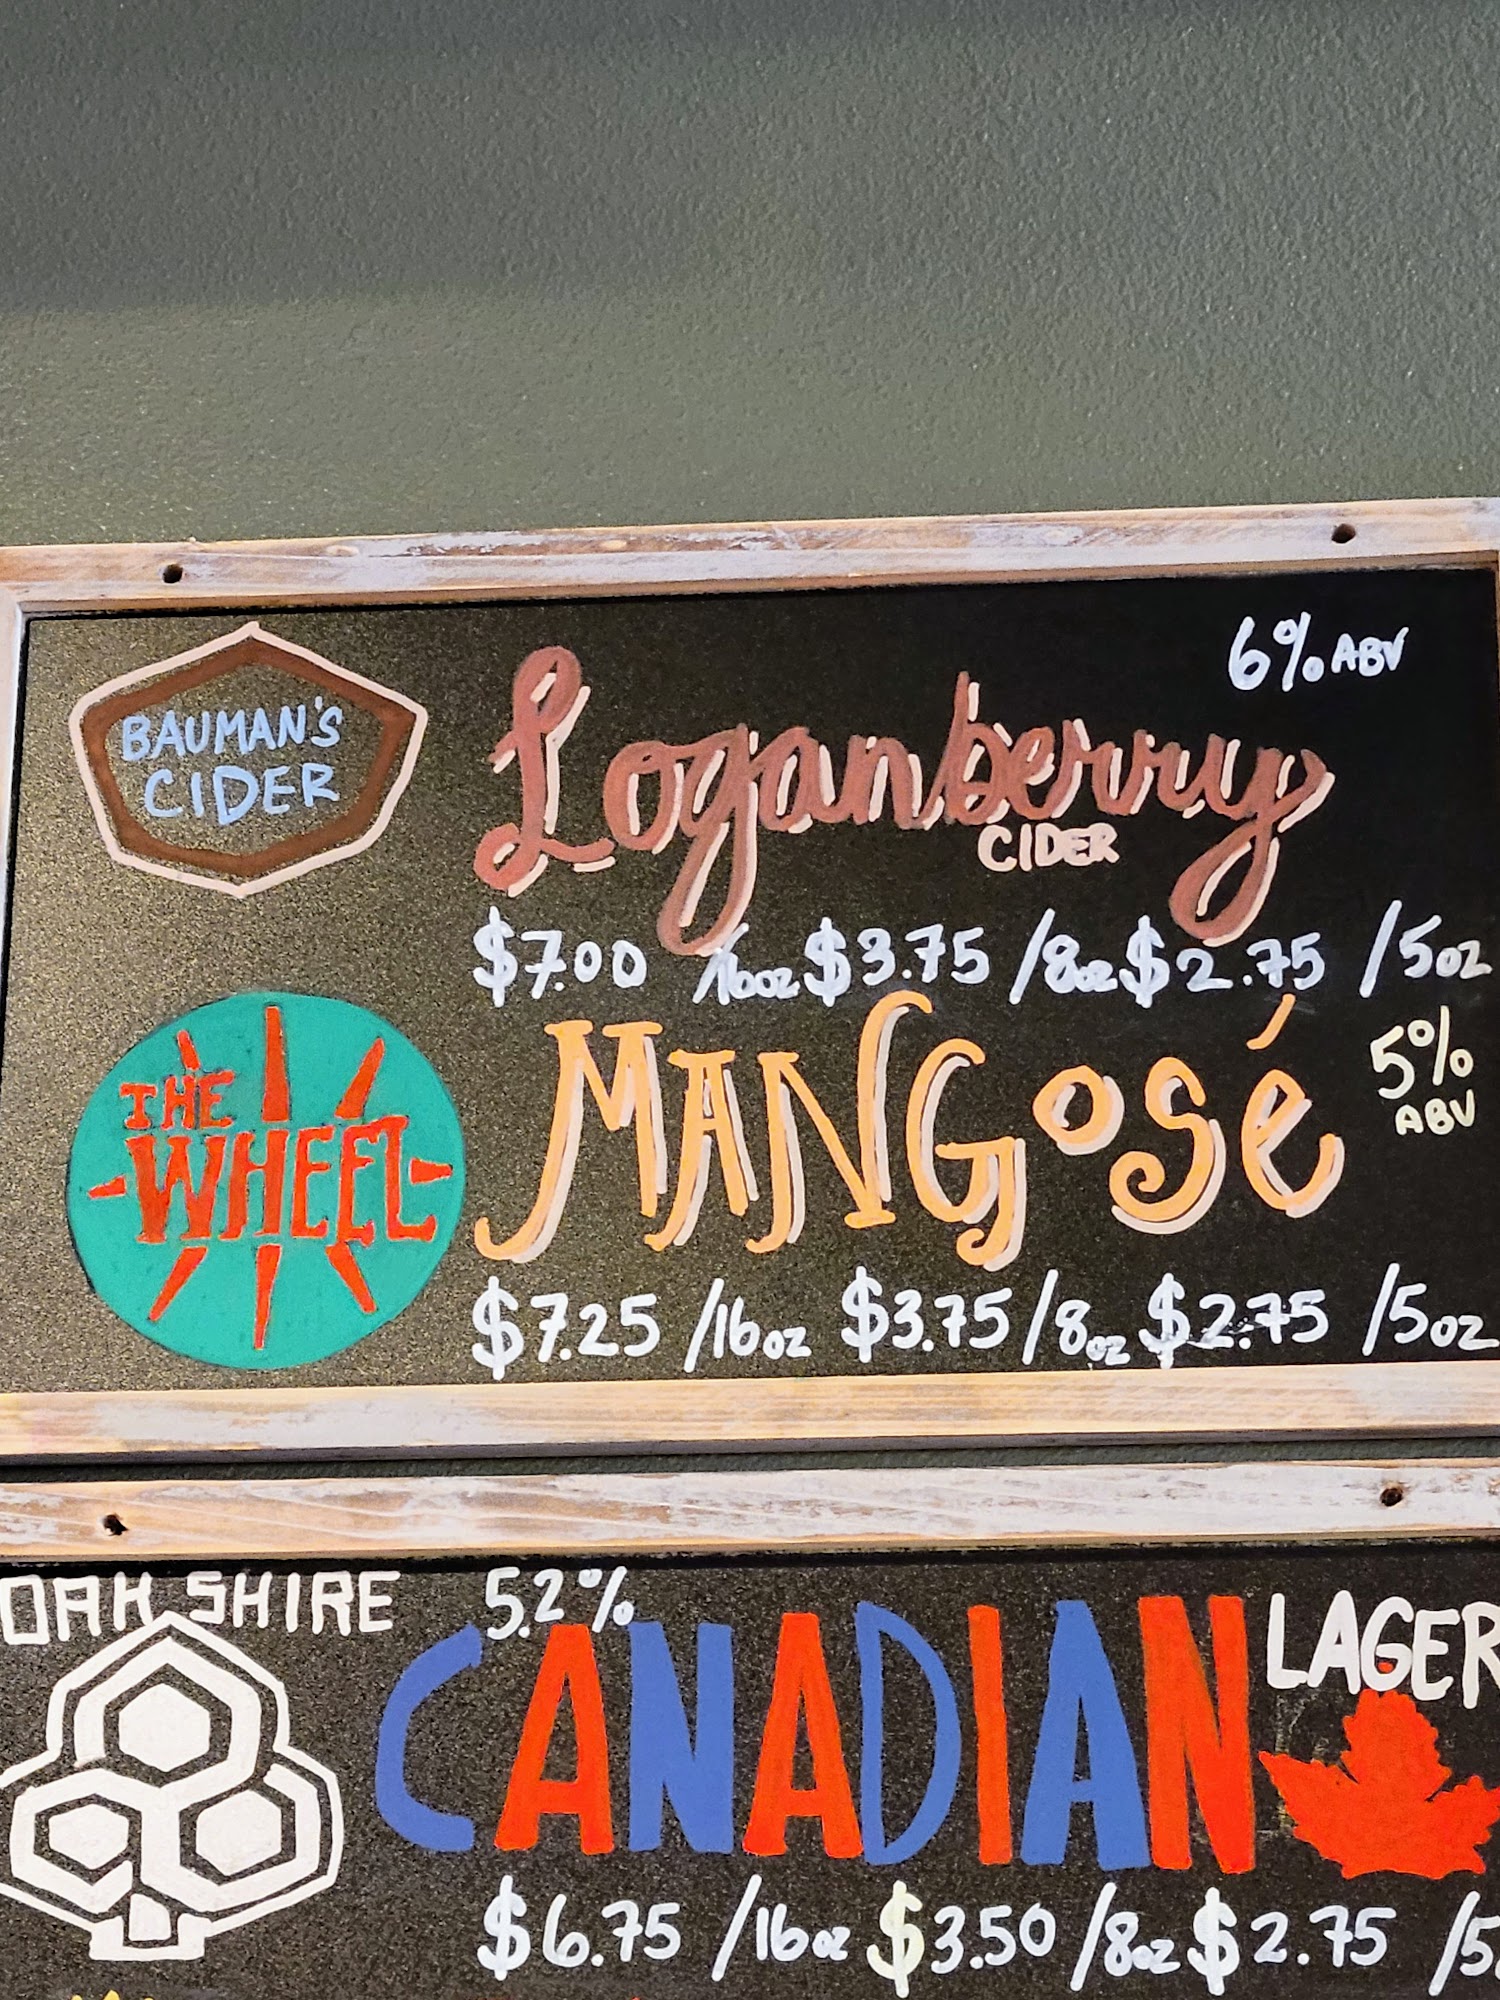 BAUMAN'S
CIDER
6% ABV
Loganberry
CIDER
$7.00 /16oz $3.75 /8oz $2.75 /5oz
THE
WHEEL
MANGosé
5%
ABV
$7.25 /16oz $3.75/8oz $2.75 /5oz
OAKSHIRE
5.2%
CANADIAN
LAGER
$6.75 /16oz $3.50 /8oz $2.75 /5